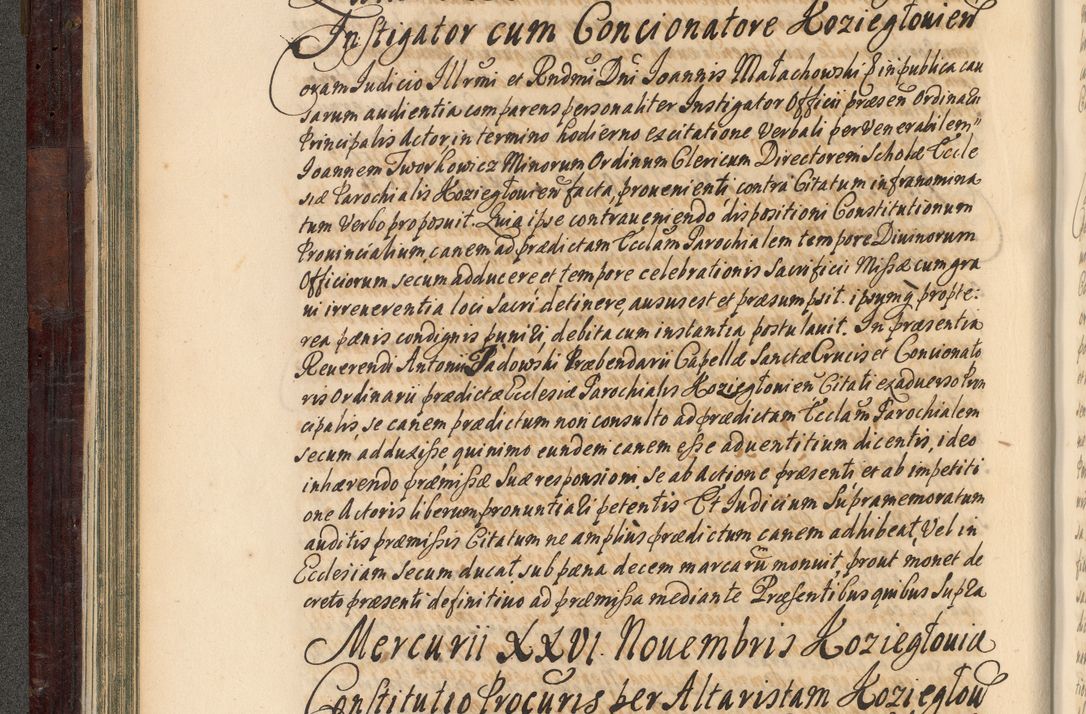 Instigator cum Concionatore Koziegłouien̄
Coram Iudicio Illrmi et Rndmi Dni Joannis Małachowski E in publica cau
sarum audientia comparens personaliter Instigator Officii præsen̄ Ordinarii
Principalis Actor, in termino hodierno ex citatione verbali per Venerabilem
Ioannem Tworkowicz Minorum Ordinum Clericum Directorem Scholæ Eccle
siæ Parochialis Koziegłouien̄ facta, prouenienti contra Citatum infranomina
tum Verbo proposuit. Quia ipse contraueniendo dispositioni Constitutionum
Prouincialium, canem ad prædictam Ecclam Parochialem tempore Diuinorum
Officiorum secum adducere et tempore celebrationis Sacrificii Missæ cum gra
ui irreuerentia loci sacri detinere, ausus est et præsumpsit. ipsumq propte:
rea pænis condignis puniri, debita cum instantia postulauit. In præsentia
Reuerendi Antonii Padowski Præbendarii Capellæ Sanctæ Crucis et Concionato
ris Ordinarii prædictæ Ecclesiæ Parochialis Koziegłouien̄ Citati ex aduerso Prin
cipalis, se canem prædictum non consulto ad prædictam Ecclam Parochialem
secum adduxisse quinimo eundem canem esse aduentitium dicentis, ideo
inhærendo præmissæ suæ responsioni, se ab actione præsenti et ab impetiti
one Actoris liberum pronuntiari petentis Et Iudicium Supramemoratum
auditis præmissis Citatum ne amplius prædictum canem adhibeat, Vel in
Ecclesiam secum ducat, sub pæna decem marcarū monuit, prout monet de
creto præsenti definitiuo ad præmissa mediante Præsentibus quibus Supra
Mercurii XXVI Nouembris Koziegłouiæ
Constitutio Procuris per Altaristam Koziegłou